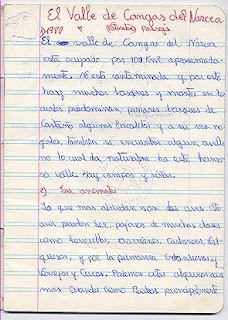 El Valle de Cangas del Narcea
paisaje
El valle de Cangas del Narcea
esta ocupado por 100 Km² aproximada-
mente. No esta contaminada y por esto
hay muchos bosques y montes en los
cuales predominan, bosques de
Castaño algunos y a su vez ro-
bles, también se encuentra algun avella-
no lo cual da naturaleza ha este hermo-
so valle. hay campos y viñas.
Los animales
Lo que mas abundan son las aves. Es-
tas pueden ser, pajaros de muchas clases
como
y por la primavera Golondrinas y
Vencejos y Cucos. Podemos citar algunas aves
mas Grandes como Buhos principalmente